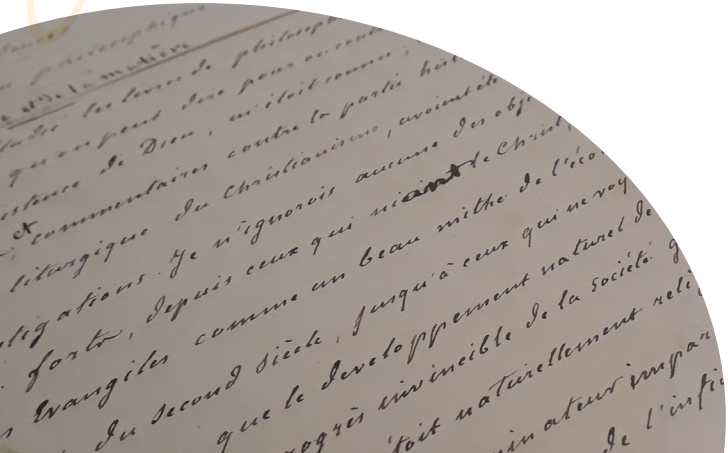 philosophique
et de la matière
les livres de philosoph
qu'on peut dire pour ou
istence de Dieu, m'étoit connu;
et commentaires contre la partie hist
liturgique du Christianisme, avoient été
stigations. Je n'ignorois aucune des obje
forts, depuis ceux qui niant le Christ,
Evangiles comme un beau mithe de l'éco
du second siècle, jusqu'à ceux qui ne voy
que le developpement naturel de
rogrès invincible de la société
toit naturellement reli
inateur impar
de l'infi